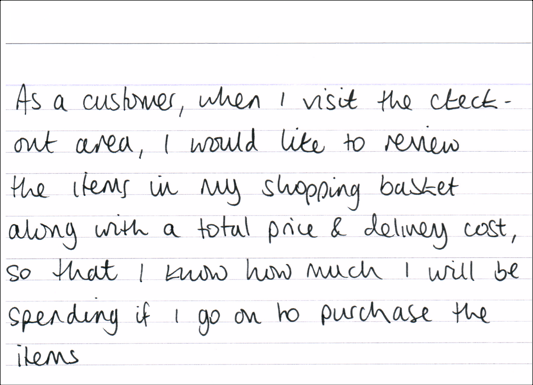 As a customer, when I visit the check-
out area, I would like to review
the items in my shopping basket
along with a total price & delivery cost,
so that I know how much I will be
spending if I go on to purchase the
items